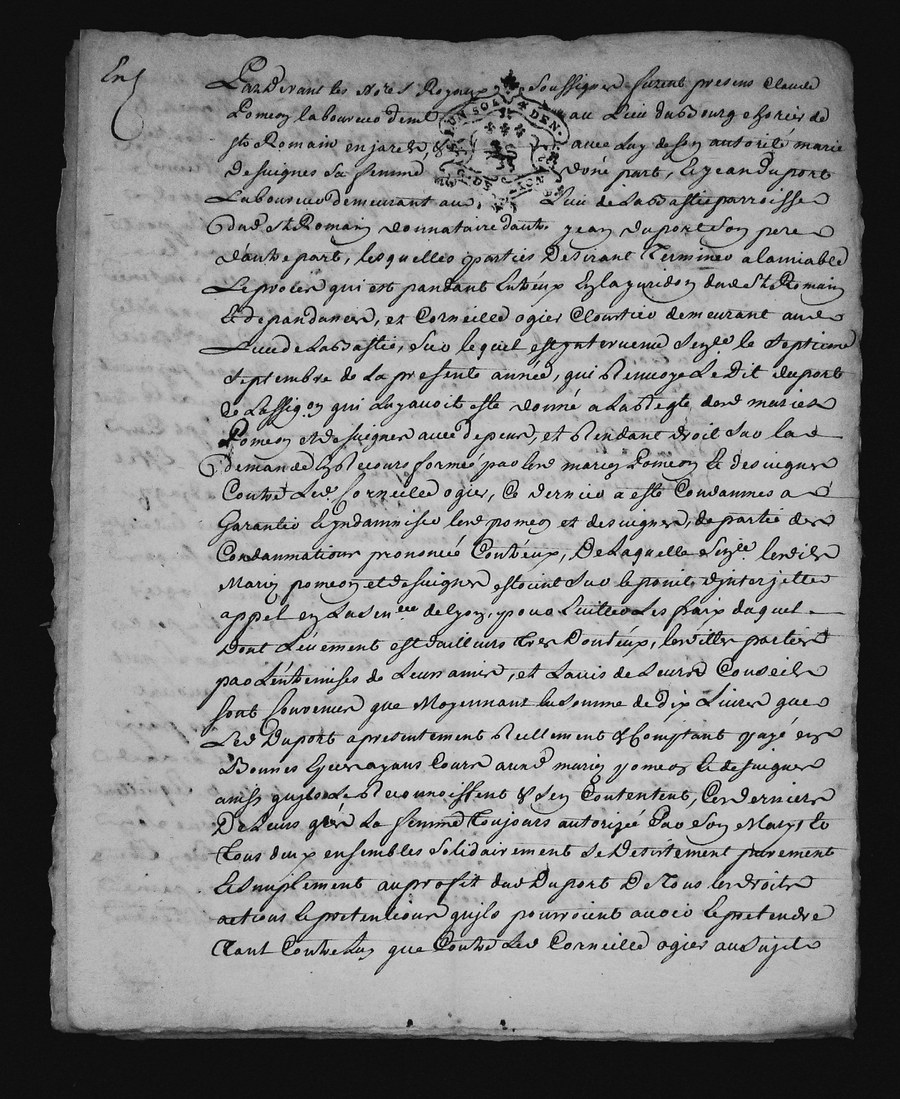 En
Pardevant les No.res Royaux Soussignés furent présens Claude
Pomeon laboureur demt au Lieu du Bourg
St Romain en jarès, & avec Luy de Son autorité marie
Desuignes Sa femme d'une part, Et jean Duport
Laboureur demeurant au Lieu de Labastie parroisse
Dud St Romain Donnataire d'autre jean Duport Son pere
d'autre part, lesquelles parties Desirant Terminer a lamiable
Le procès qui est pandant Entr'eux En la juridon dud St Romain
Et dépandances, et Corneille ogier Cloutier demeurant aud
Lieu de Labastie, Sur lequel est intervenue Sentce le Septieme
Septembre de La presente année, qui Renvoye Le Dit duport
de Lassigon qui Luy avoit esté donné a La Reqte desd mariés
Pomeon et desuignes avec depens, et Rendant droit Sur la
demande En Recours formée par lesd mariez Pomeon Et desuignes
Contre Led Corneille ogier, Ce dernier a esté Condamnes a
Garantir Et jndamniser lesd pomeon et desuignes, de partie des
Condamnations prononcée Contr'eux, De Laquelle Sentce lesdits
Mariez pomeon et desuignes estoient Sur le point d'interjetter
appel en La Senéee de Lyon, pour Eviter Les fraix duquel
Dont L'évement est d'ailleurs tres Douteux, lesdittes parties
par L'entremises de Leurs amis, et L'avis de Leurs Conseils
sont Convenues que Moyennant la Somme de dix Livres que
Led Duport a presentement Réellement & Comptant payé en
Bonnes Especes ayans Cours auxd mariez pomeon Et desuignes
ainsy quils Le Reconnoissent & S'en Contentent, Ces derniers
De Leurs grés La femme toujours autorizée Par Son Mary Et
Tous deux ensembles Solidairement Se Desistement purement
Et Simplement au profit dud Duport De Tous les droits
actions Et pretentions quils pourroient avoir Et pretendre
Tant Contre Luy que Contre Led Corneille ogier au Sujet